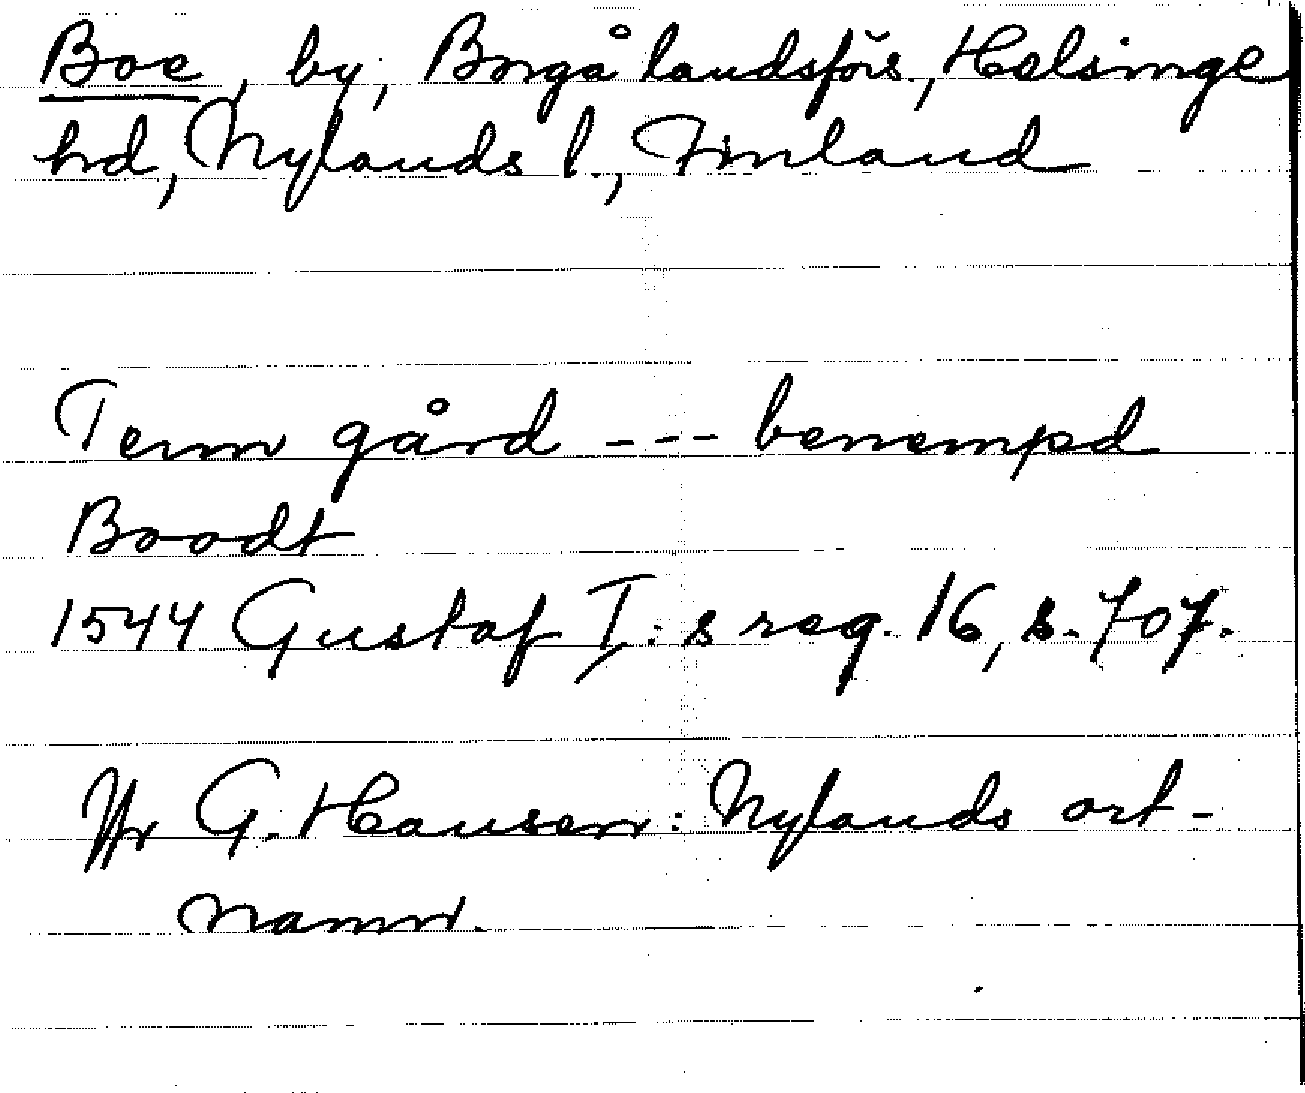 Boe, by, Borgå landsförs., Helsinge
hd, Nylands l., Finland
Tenn gård --- benempd
Boodt
1544 Gustaf I:s reg. 16, s. 707.
Jfr G. Hausen: Nylands ort-
namn.